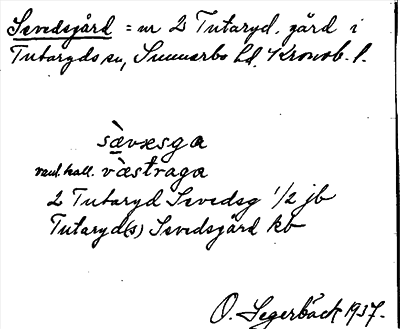 Sevedsgård = nr 2 Tutaryd, gård i
Tutaryds sn, Sunnerbo hd, Kronob. l.
sæ̀vxsga
vanl. kall. væ̀straga
2 Tutaryd Sevedsg 1/2 jb
Tutaryd(s) Sevedsgård kb
O. Segerbäck 1937.